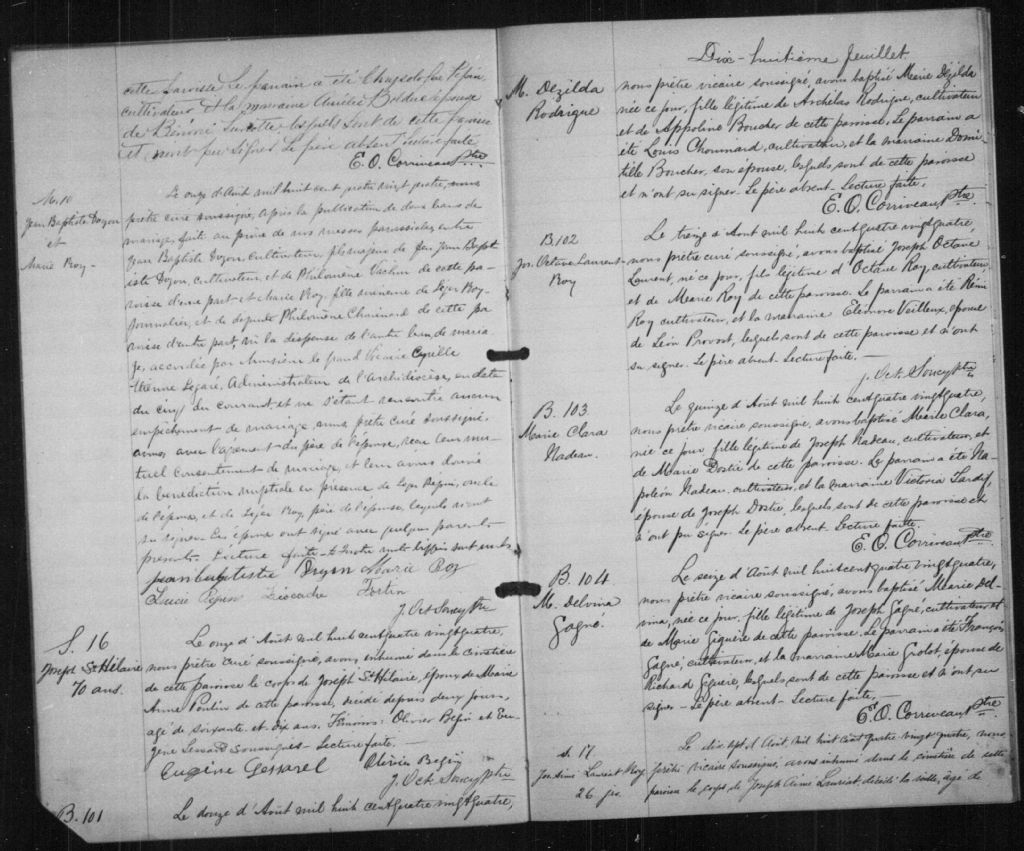 cette paroisse Le parrain a été Chrysolofue Pépin,
cultivateur et la marraine Amélie Bolduc épouse
de Bénoni lesquels sont de cette paroisse
et n'ont pu signer. Le père absent Lecture faite
E. O. Corriveau Ptre
M. 10
Jean Baptiste Doyon
et
Marie Roy -
Le onze d'Août mil huit cent quatre vingt quatre, nous
prêtre curé soussigné, après la publication de deux bans de
mariage, faite au prône de nos messes paroissiales, entre
Jean Baptiste Doyon, cultivateur, fils majeur de feu Jean Bapt-
iste Doyon, cultivateur, et de Philomène Vachon de cette pa-
roisse d'une part, et Marie Roy, fille mineure de Léger Roy
journalier, et de defunte Philomène Chouinard de cette pa
roisse d'autre part, vu la dispense de l'autre ban de maria-
ge, accordée par Monsieur le grand Vicaire Cyrille
Etienne Légaré, Administrateur de l'Archidiocèse, en date
du cinq du courant, et ne s'étant rencontré aucun
empêchement de mariage, nous, prêtre curé soussigné
avons, avec l'agrément du père de l'épouse, reçu leur mu-
tuel consentement de mariage, et leur avons donné
la bénédiction nuptiale en présence de Léger Bégin, oncle
de l'époux, et de Léger Roy, père de l'épouse, lesquels n'ont
su signer. Les époux ont signé avec quelques parents
présents. Lecture faite - quatre mots biffés sont nuls
jeanbaptiste Doyon Marie Roy
Lucie Pépin Léocadie Fortin
J. Oct Soucy Ptre
S. 16
Joseph St Hilaire
70 ans.
Le onze d'Août mil huit cent quatre vingt quatre,
nous prêtre curé soussigné, avons inhumé dans le cimetière
de cette paroisse le corps de Joseph St Hilaire, époux de Marie
Anne Poulin de cette paroisse, décédé depuis deux jours,
agé de soixante et dix ans. Témoins: Olivier Bégin et Eu-
gène Lessard soussignés - Lecture faite. -
Eugène Lessard Olivier Begin
J. Oct. Soucy Ptre
B. 101
Le douze d'Août mil huit cent quatre vingt quatre,
Dix-huitième feuillet
M. Dezilda
Rodrigue
nous prêtre vicaire soussigné, avons baptisé Marie Dézilda
née ce jour, fille légitime de Archélas Rodrigue, cultivateur
et de Appoline Boucher de cette paroisse. Le parrain a
été Louis Chouinard, cultivateur, et la marraine Domi-
tille Boucher, son épouse, lesquels sont de cette paroisse
et n'ont su signer. Le père absent - Lecture faite,
E. O. Corriveau Ptre
B. 102
Jos. Octave Laurent
Roy
Le treize d'Août mil huit cent quatre vingt quatre,
nous prêtre curé soussigné, avons baptisé Joseph Octave
Laurent, né ce jour, fils légitime d'Octave Roy, cultivateur
et de Marie Roy de cette paroisse. Le parrain a été Rémi
Roy cultivateur, et la marraine Eléonore Veilleux, épouse
de Léon Provost, lesquels sont de cette paroisse et n'ont
su signer. Le père absent. Lecture faite. -
J. Oct. Soucy Ptre
B. 103
Marie Clara
Nadeau.
Le quinze d'Août mil huit cent quatre vingt quatre,
nous prêtre vicaire soussigné, avons baptisé Marie Clara,
née ce jour, fille légitime de Joseph Nadeau, cultivateur, et
de Marie Dostie de cette paroisse. Le parrain a été Na-
poléon Nadeau, cultivateur, et la marraine Victoria Tardif,
épouse de Joseph Dostie, lesquels sont de cette paroisse et
n'ont pu signer. Le père absent. Lecture faite.
E. O. Corriveau Ptre
B. 104
M. Delvina
Gagné.
Le seize d'Août mil huit cent quatre vingt quatre,
nous prêtre vicaire soussigné, avons baptisé Marie Del-
vina, née ce jour, fille légitime de Joseph Gagné, cultivateur et
de Marie Giguère de cette paroisse. Le parrain a été François
Gagné, cultivateur, et la marraine Marie Grolot, épouse de
Richard Giguère, lesquels sont de cette paroisse et n'ont su
signer - Le père absent - Lecture faite,
E. O. Corriveau Ptre
S. 17
Jos. Aimé Lauréat Roy
26 jrs
Le dix sept d'Août mil huit cent quatre vingt quatre, nous
prêtre vicaire soussigné, avons inhumé dans le cimetière de cette
paroisse le corps de Joseph Aimé Lauréat, décédé la veille, agé de